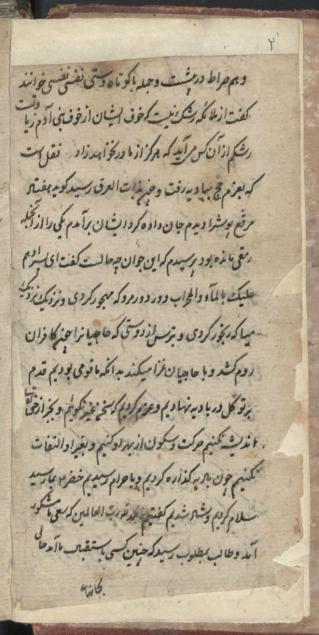 ۲
و هم صراط در پیشست و جمله با کوتاه دستی نفسی نفسی خوانند
گفت از ملائکه رشک نیست که خوف ایشان از خوف بنی آدم زیادتست
رشکم از آن کس می آید که هرگز از مادر نخواهد زاد نقل است
که بعزم حج ببادیه رفت و چون بذات العرق رسید گوید هفتاد
مرقع پوش را دیدم جان داده گرد ایشان برآمدم یکی را از آنجمله
رمقی مانده بود پرسیدم که این جوان چه حالست گفت ای پسر ادهم
علیک بالماء والمحراب دور دور مرو که مهجور گردی و نزدیک نزدیک
میا که رنجور گردی و بترس از دوستی که حاجیان را چون کافران
روم کشد و با حاجیان غزا میکند بدانکه ما قومی بودیم قدم
بر توکل در بادیه نهادیم و عزم کردیم که سخن نگوئیم و بجز از خدا
اندیشه نکنیم حرکت و سکون از بهر او کنیم و بغیر او التفات
نکنیم چون بادیه گذاره کردیم و باحرام رسیدیم خضر بما رسید
سلام کردیم و شاد شدیم گفتیم الحمد لله رب العالمین که سعی ما مشکور
آمد و طالب بمطلوب رسید که چنین کسی باستقبال ما آمد حالی
بجانها